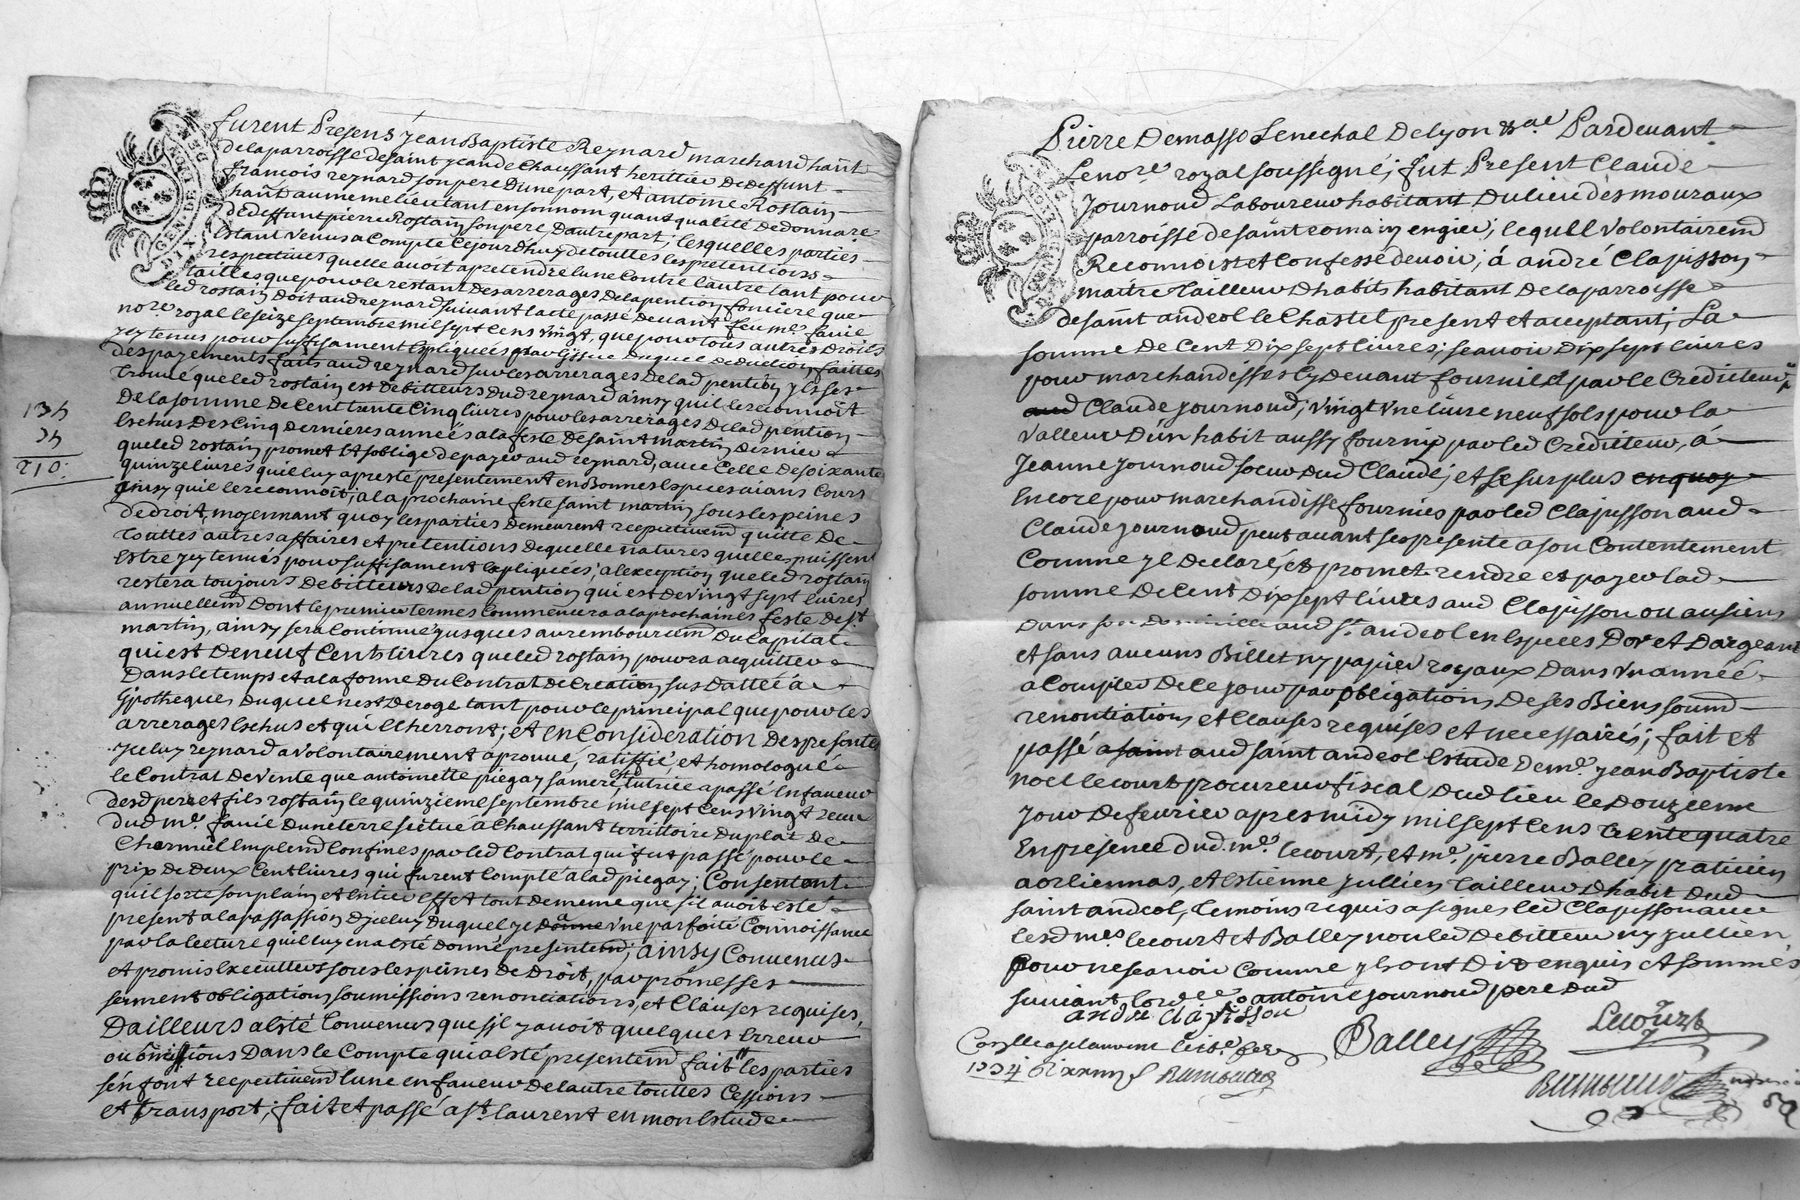 furent Presens Jean Baptiste Reynard marchand hant
de la parroisse de saint jean de Chaussant heritier de deffunt
francois reynard son pere d'une part, et antoine Rostain
hant au meme lieu tant en son nom quant qualité de donnare
de deffunt pierre Rostain son pere d'autre part; lesquelles parties
estant venus a compte ce jourdhuy de touttes les pretentions
respectives quelle avoit a pretendre lune contre lautre tant pour
tailles que pour le restant des arrerages de la pention fonciere que
led rostain doit aud reynard suivant lacte passé devant feu me favie
nore royal le seize septembre mil sept cens vingt, que pour tous autres droits
icy tenus pour suffisament expliquées par lissue duquel deduction faittes
des payements faits aud reynard sur les arrerages de lad pention il sest
trouvé que led rostain est debitteurs dud reynard ainsy quil le reconnoit
de la somme de cent trente cinq livres pour les arrerages de lad pention
eschus des cinq dernieres années a la feste de saint martin dernier
que led rostain promet et soblige de payer aud reynard, avec celle de soixante
quinze livres quil luy a presté presentement en bonnes especes aians cours
ainsy quil le reconnoit; a la prochaine feste saint martin sous les peines
de droit, moyennant quoy les parties demeurent respectivemd quitte de
touttes autres affaires et pretentions de quelle natures quelles puissent
estre icy tenues pour suffisament expliquées; a lexception que led rostain
restera toujours debitteurs de lad pention qui est de vingt sept livres
annuellemd dont le premier termes commencera a la prochaines feste de st
martin, ainsy sera continué jusques au remboursemd du capital
qui est de neuf cents livres que led rostain pourra acquitter
dans le temps et a la forme du contrat de creation sus datté a
lypotheques duquel nest deroge tant pour le principal que pour les
arrerages eschus et qui echerront; et en consideration des presentes
iceluy reynard a volontairement aprouvé, ratiffié, et homologué
le contrat de vente que antoinette piegay sa mere et tutrice a passé en faveur
desd pere et fils rostain le quinzieme septembre mil sept cens vingt receu
dud me favié dune terre scitué a Chaussant territtoire du plat de
Charmiel emplemd confines par led contrat qui fut passé pour le
prix de deux cent livres qui furent compté a lad piegay; consentant
quil sorte son plain et entier effet tout de meme que sil avoit esté
present a la passassion diceluy duquel il a donne une parfaite connoissance
par la lecture quil luy en a esté donné presentemd; ainsy convenus
et promis executters sous les peines de droit, par promesses
serment obligations soumissions renonciations, et clauses requises,
Dailleurs a esté convenus que sil y avoit quelques erreur
ou omissions dans le compte qui a esté presentemd fait les parties
sen font respectivemd lune en faveur de lautre touttes cessions
et transport; fait et passé a st laurent en mon estude
135
75
210:
Pierre Demasso Senechal de lyon &ae Pardevant
Le nore royal soussigné; fut Present Claude
Journoud Laboureur habitant du lieu des mouraux
parroisse de saint romain en gier, lequel volontairemd
Reconnoist et confesse devoir, á andré Clapisson
maitre tailleur dhabits habitant de la parroisse
de saint andeol le Chastel present et acceptant; La
somme de cent dix sept livres; scavoir dix sept livres
pour marchandisses cy devant fournies par le crediteur
aud Claude journoud; vingt une livre neuf sols pour la
valleur dun habit aussy fournis par led crediteur, á
Jeanne Journoud soeur dud Claude; et le surplus enquoy
encore pour marchandisse fournies par led Clapisson aud
Claude journoud peut avant ses presente a son contentement
comme il declaré, et promet rendre et payer lad
somme de cent dix sept livres aud Clapisson ou au siens
dans son domicille aud st andeol en especes dor et dargeant
et sans aucuns billet ny papier royaux dans un année
a compter de ce jour par obligations de ses biens soumd
renontiations et clauses requises et necessaires; fait et
passé a saint aud saint andeol estude de me jean Baptiste
noel lecourt procureur fiscal dud lieu le douzieme
jour de fevrier apres midy mil sept cens trente quatre
en presence dud. me lecourt, et me pierre Balley praticien
a orliennas, et estienne jullien tailleur dhabit dud
saint andeol, temoins requis a signes led Clapisson avec
lesd mes lecourt et Balley non led debitteur ny jullien
pour ne scavoir comme ils ont dit enquis et sommés
suivant lordce antoine journoud pere dud
andre clapisson
Balley
Lecourt
1734